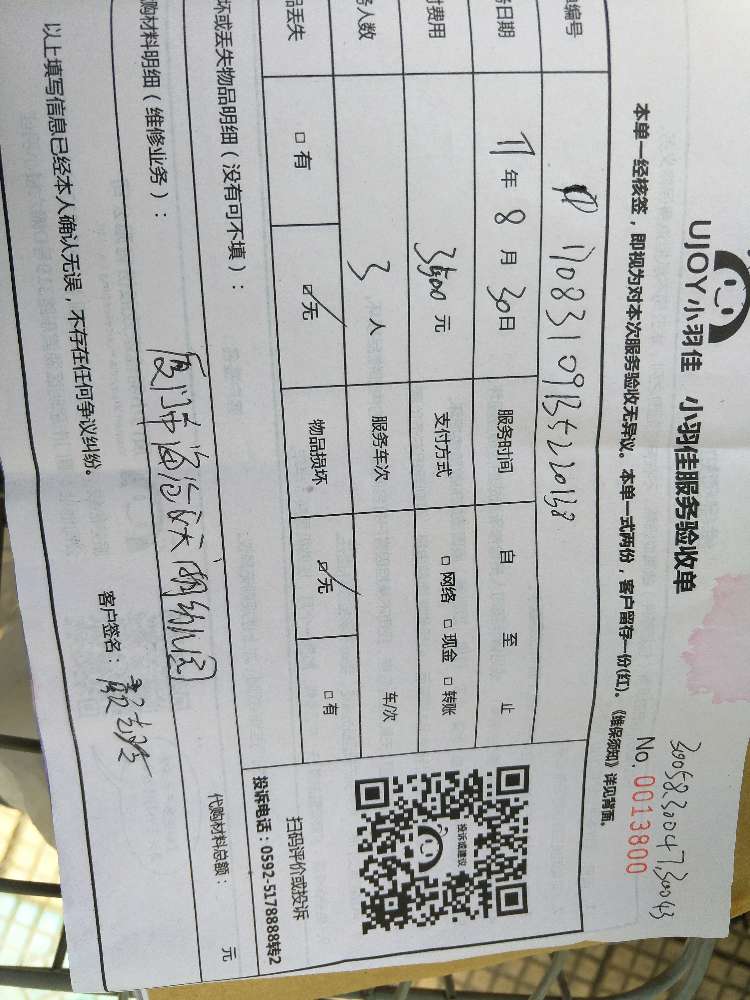 3005830047730043
UJOY小羽佳 小羽佳服务验收单
No. 0013800
本单一经核签，即视为对本次服务验收无异议。本单一式两份，客户留存一份(红)。《维保须知》详见背面。
单编号 17083109135220138
务日期 17年8月30日 服务时间 自 至 止
付费用 3500元 支付方式 □ 网络 □ 现金 □ 转账
务人数 3人 服务车次 车/次
品丢失 □ 有 ☑ 无 物品损坏 ☑ 无 □ 有
投诉或建议
扫码评价或投诉
投诉电话：0592-5178888转2
坏或丢失物品明细（没有可不填）：
购材料明细（维修业务）： 厦门市海沧天湖幼儿园
代购材料总额： 元
以上填写信息已经本人确认无误，不存在任何争议纠纷。
客户签名：